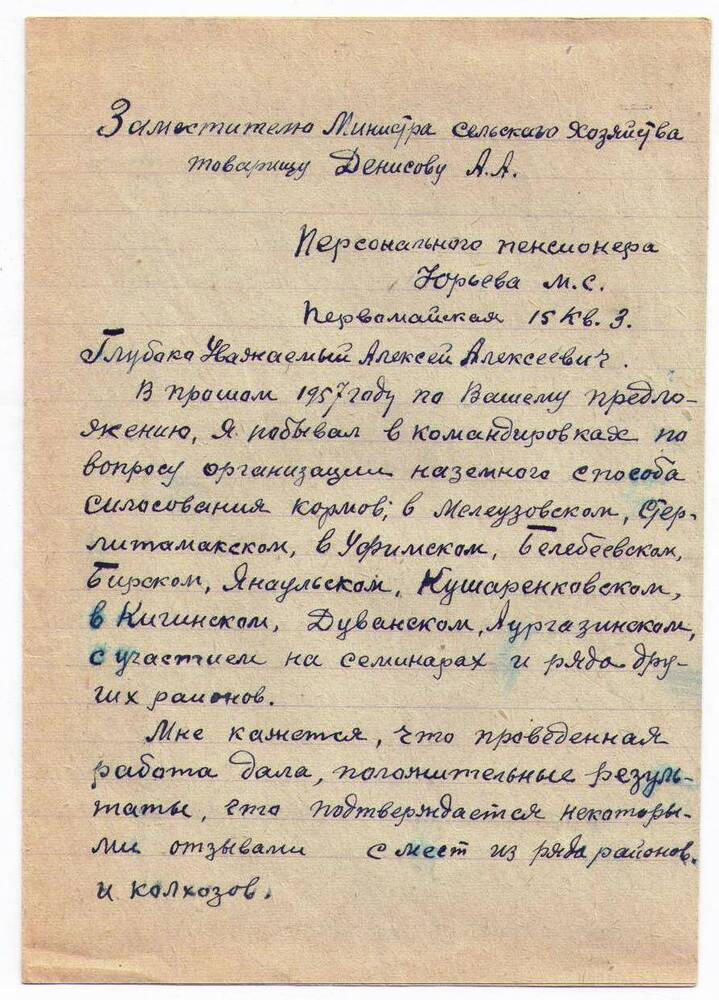 Заместителю Министра сельского хозяйства
товарищу Денисову А.А.
Персонального пенсионера
Юрьева М.С.
Первомайская 15 кв. 3.
Глубако Уважаемый Алексей Алексеевич.
В прошлом 1957 году по Вашему предло-
жению, я побывал в командировках по
вопросу организации наземного способа
силосования кормов; в Мелеузовском, Стер-
литамакском, в Уфимском, Белебеевском,
Бирском, Янаульском, Кушаренковском,
в Кигинском, Дуванском, Аургазинском,
с участием на семинарах и ряда дру-
гих районов.
Мне кажется, что проведенная
работа дала, положительные резуль-
таты, что подтверждается некоторы-
ми отзывами с мест из ряда районов.
и колхозов.